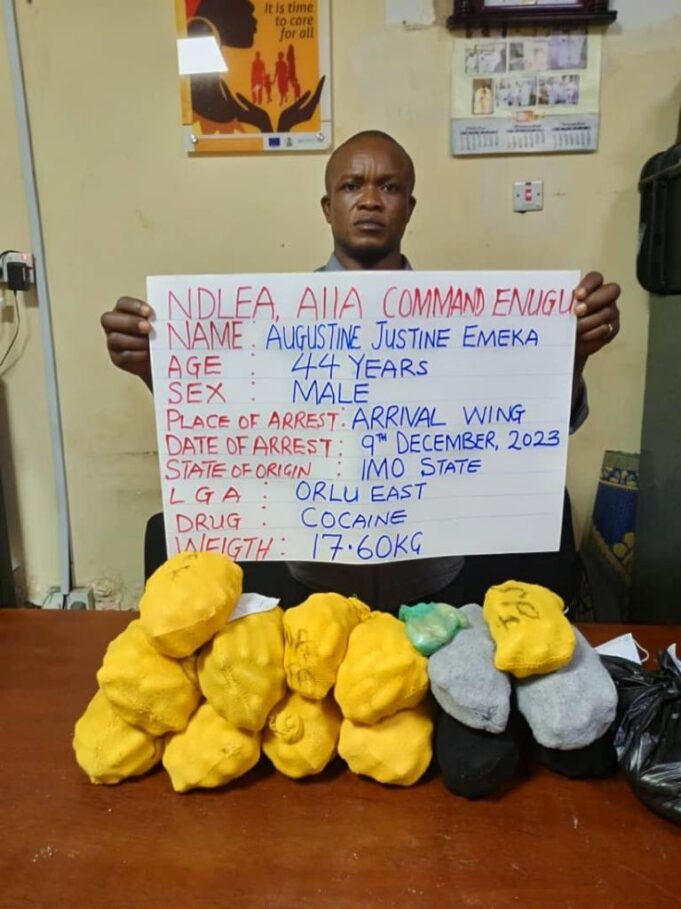 It is time
to care
for all
NDLEA, AIIA COMMAND ENUGU
NAME : AUGUSTINE JUSTINE EMEKA
AGE : 44 YEARS
SEX : MALE
PLACE OF ARREST: ARRIVAL WING
DATE OF ARREST: 9TH DECEMBER, 2023
STATE OF ORIGIN : IMO STATE
LGA : ORLU EAST
DRUG : COCAINE
WEIGTH: 17.60KG